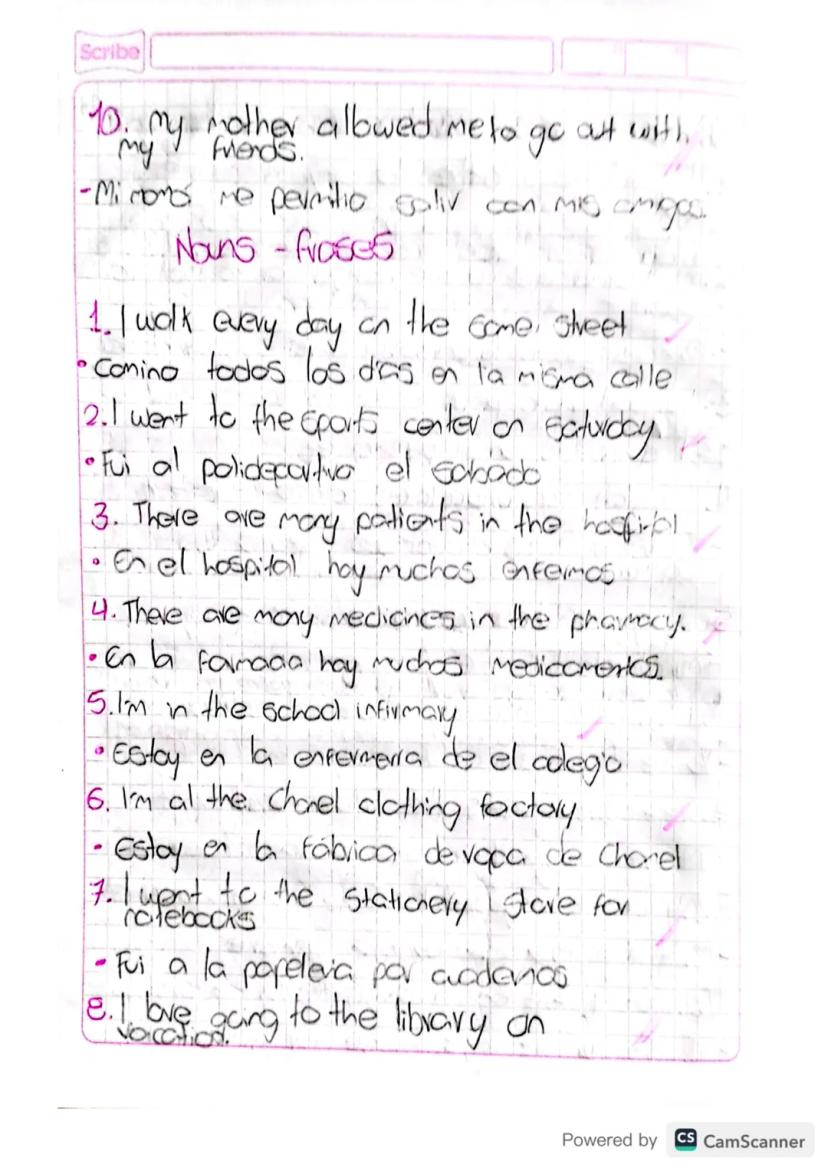 Scribe
10. My mother allowed me to go out with
my friends.
- Mi mamá me permitio salir con mis amigos.
Nouns - frases
1. I walk every day on the same street
• Camino todos los días en la misma calle
2. I went to the sports center on saturday
• Fui al polideportivo el sabado
3. There are many patients in the hospital
• En el hospital hay muchos enfermos
4. There are many medicines in the pharmacy.
• En la farmacia hay muchos medicamentos.
5. I'm in the school infirmary
• Estoy en la enfermería de el colegio
6. I'm at the Chanel clothing factory
- Estoy en la fábrica de ropa de Chanel
7. I went to the stationery store for
notebooks
- Fui a la papeleria por cuadernos
8. I love going to the library on
vacation.
Powered by CS CamScanner